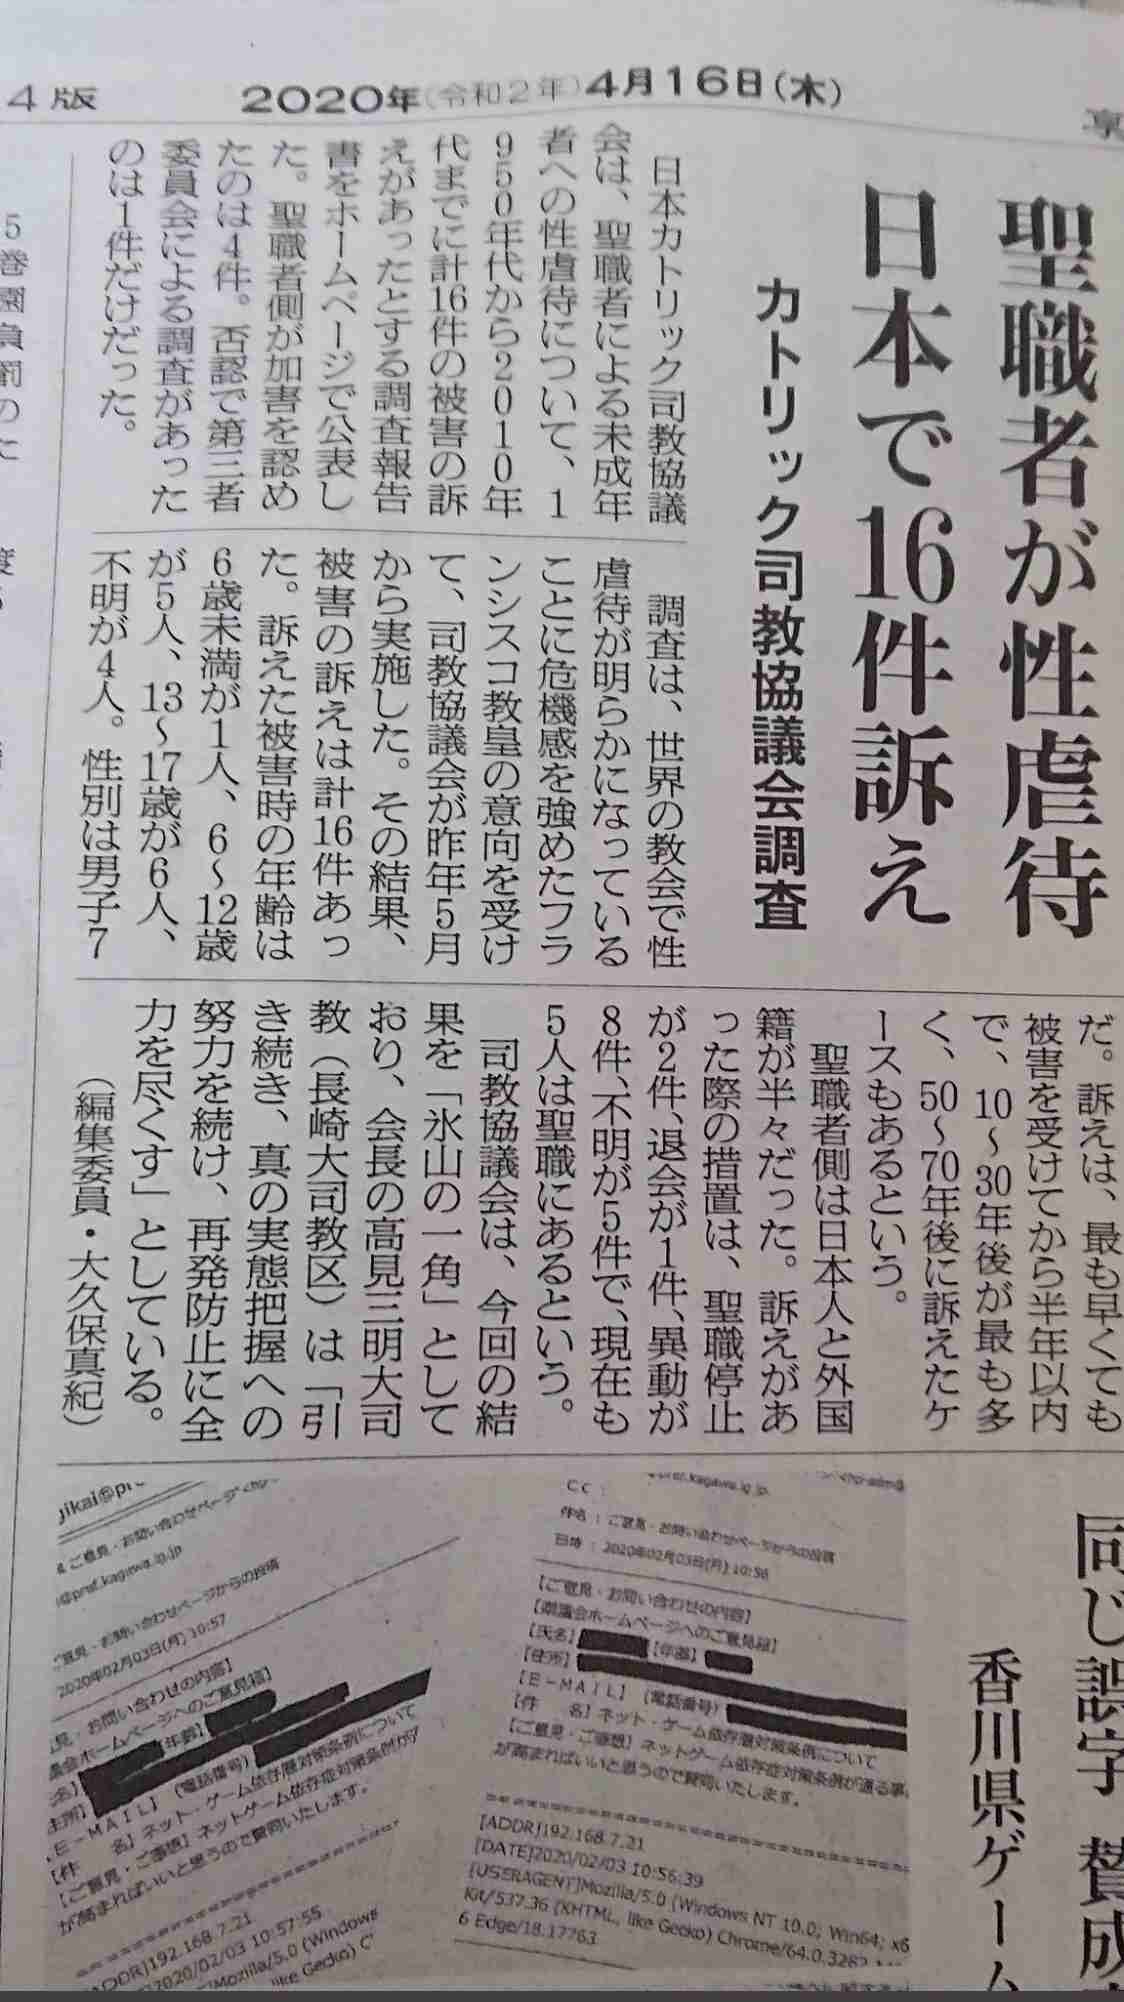 4版
2020年(令和2年)4月16日(木)
聖職者が性虐待
日本で16件訴え
カトリック司教協議会調査
日本カトリック司教協議
会は、聖職者による未成年
者への性虐待について、1
950年代から2010年
代までに計16件の被害の訴
えがあったとする調査報告
書をホームページで公表し
た。聖職者側が加害を認め
たのは4件。否認で第三者
委員会による調査があった
のは1件だけだった。
調査は、世界の教会で性
虐待が明らかになっている
ことに危機感を強めたフラ
ンシスコ教皇の意向を受け
て、司教協議会が昨年5月
から実施した。その結果、
被害の訴えは計16件あっ
た。訴えた被害時の年齢は
6歳未満が1人、6〜12歳
が5人、13〜17歳が6人、
不明が4人。性別は男子7
だ。訴えは、最も早くても
被害を受けてから半年以内
で、10〜30年後が最も多
く、50〜70年後に訴えたケ
ースもあるという。
聖職者側は日本人と外国
籍が半々だった。訴えがあ
った際の措置は、聖職停止
が2件、退会が1件、異動が
8件、不明が5件で、現在も
5人は聖職にあるという。
司教協議会は、今回の結
果を「氷山の一角」として
おり、会長の高見三明大司
教(長崎大司教区)は「引
き続き、真の実態把握への
努力を続け、再発防止に全
力を尽くす」としている。
(編集委員・大久保真紀)
同じ誤字 賛成
香川県ゲーム
jikai@pr
ご意見・お問い合わせページ
@pref.kagawa.lg.jp
ご意見・お問い合わせページからの投稿
2020年02月03日(月) 10:57
見・お問い合わせの内容】
議会ホームページへのご意見箱】
名】
【年齢】
住所】
【E-MAIL】(電話番号)
【件 名】ネット・ゲーム依存層対策条例について
【ご意見・ご感想】ネットゲーム依存症対策条例が
が高まればいいと思うので賛同いたします。
====================
[ADDR]192.168.7.21
[DATE]2020/02/03 10:57:55
Mozilla/5.0 (Windows
like Gecko) C
pref.kagawa.lg.jp
CC:
件名: ご意見・お問い合わせページからの投稿
日時: 2020年02月03日(月) 10:56
【ご意見・お問い合わせの内容】
【県議会ホームページへのご意見箱】
【氏名】
【年齢】
【住所】
【E-MAIL】(電話番号)
【件 名】ネット・ゲーム依存層対策条例について
【ご意見・ご感想】ネットゲーム依存症対策条例が通る事
が高まればいいと思うので賛同いたします。
====================
[ADDR]192.168.7.21
[DATE]2020/02/03 10:56:39
[USERAGENT]Mozilla/5.0 (Windows NT 10.0; Win64; x6
Kit/537.36 (KHTML, like Gecko) Chrome/64.0.3282
6 Edge/18.17763